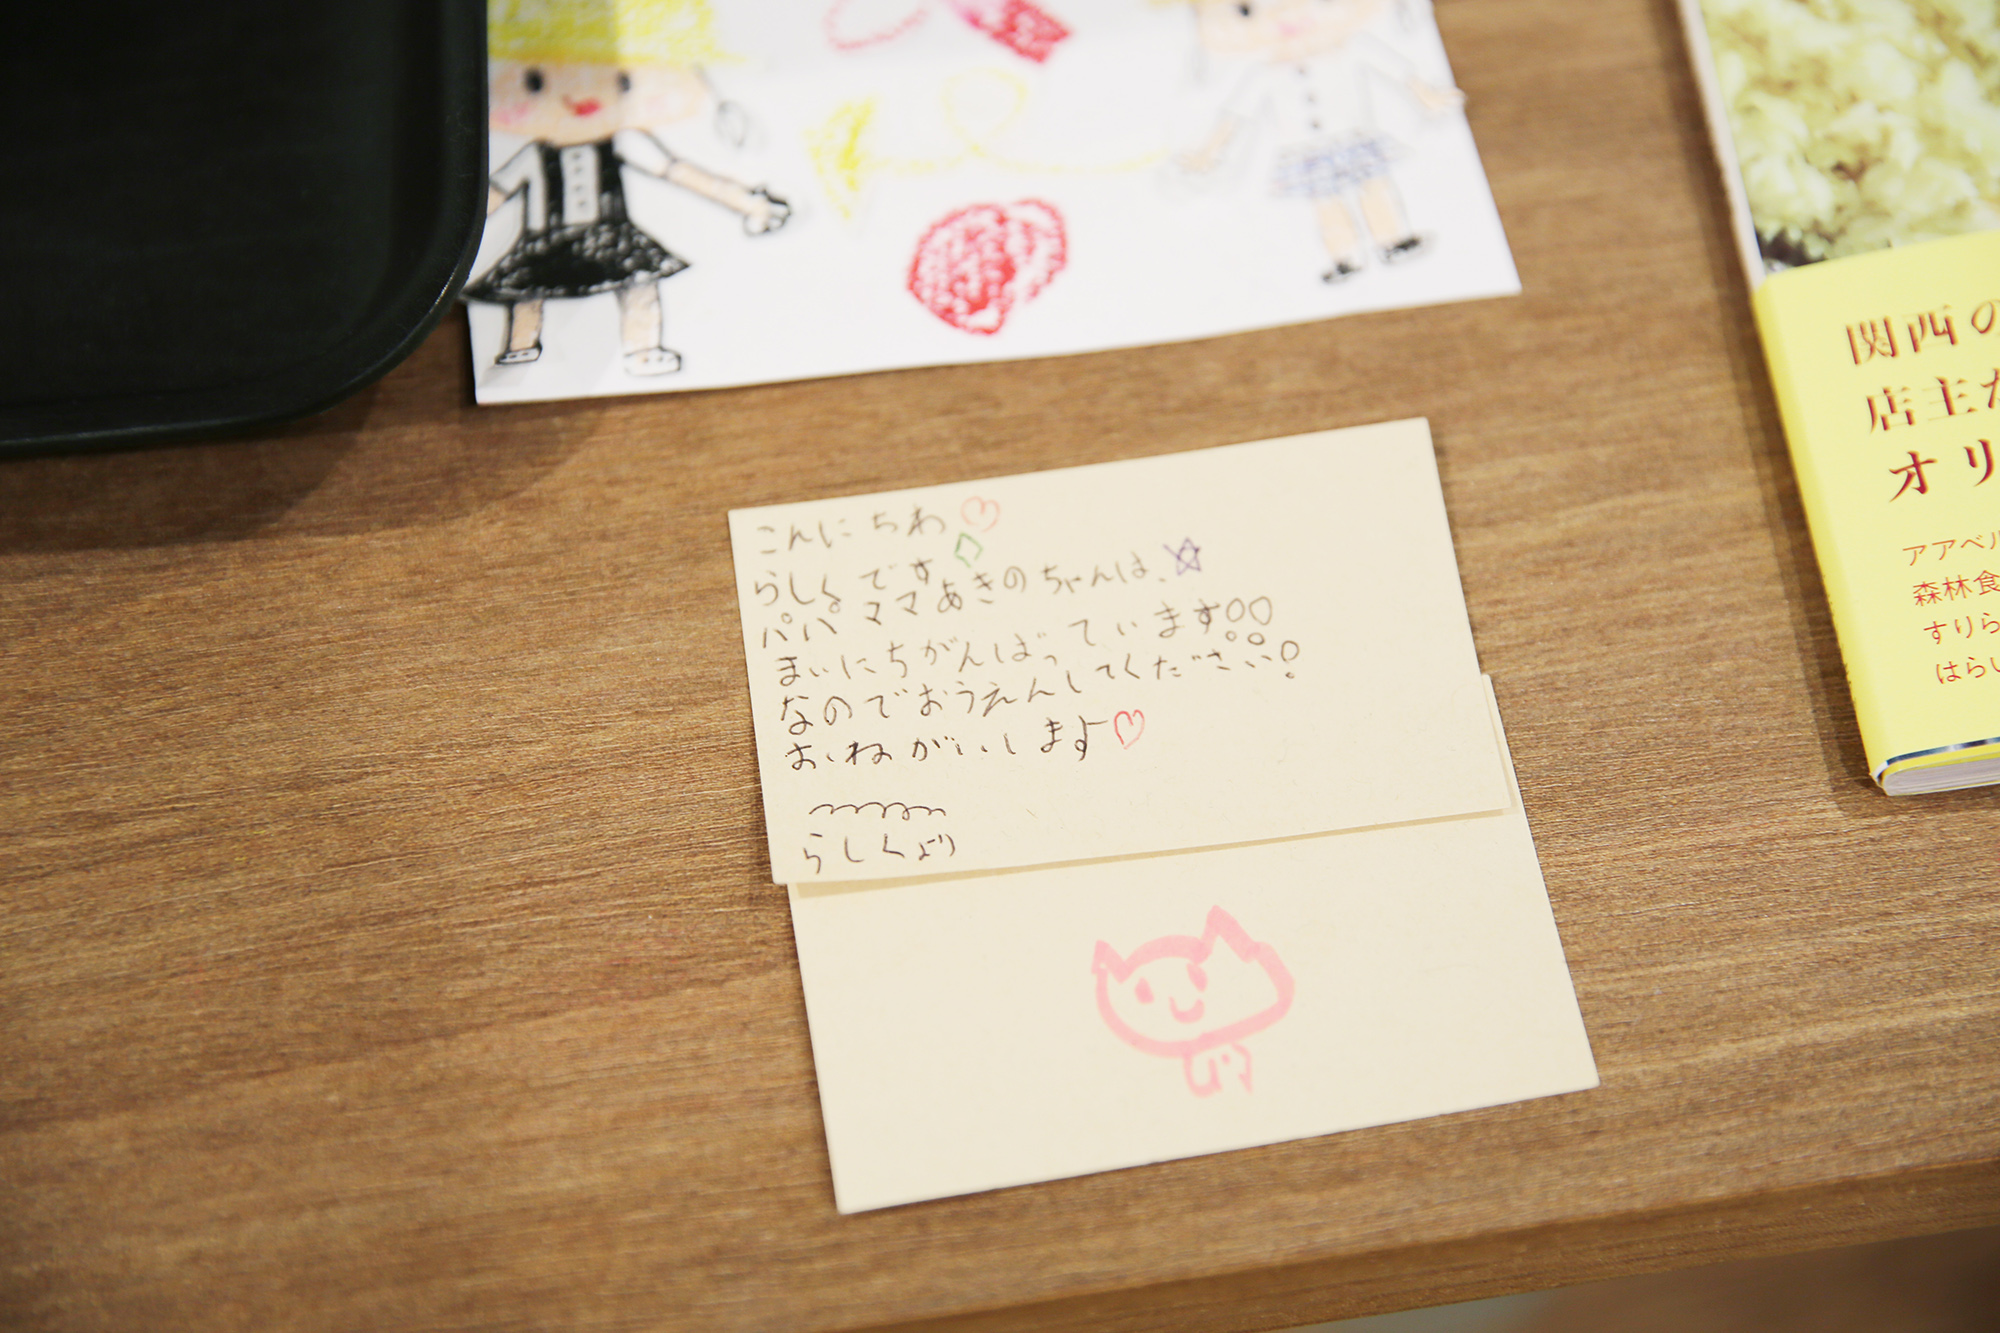 こんにちわ
らしくです
パパママあきのちゃんは、
まいにちがんばっています
なのでおうえんしてください!
おねがいします
らしくより
関西の
店主た
オリ
アアベル
森林食
すりら
はらい